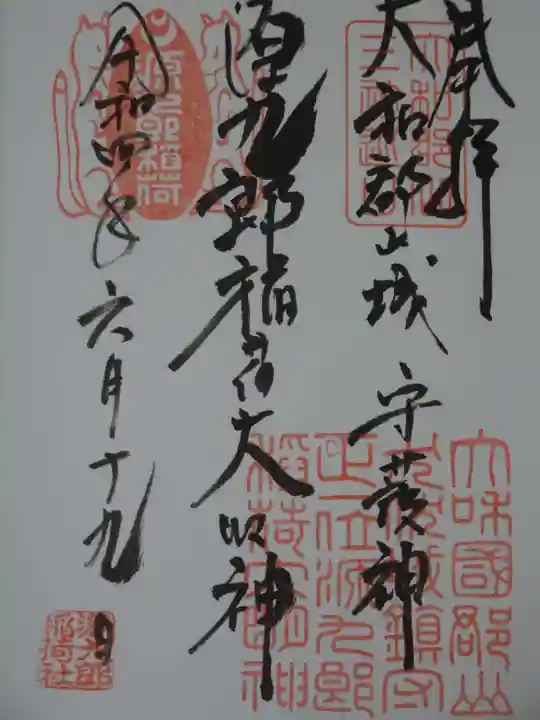 奉拝
大和郡山城 守護神
源九郎稲荷大明神
令和四年六月十九日
源九郎稲荷
大和國郡山
老城鎮守
正一位源九郎
稲荷大明神
源九郎
稲荷社